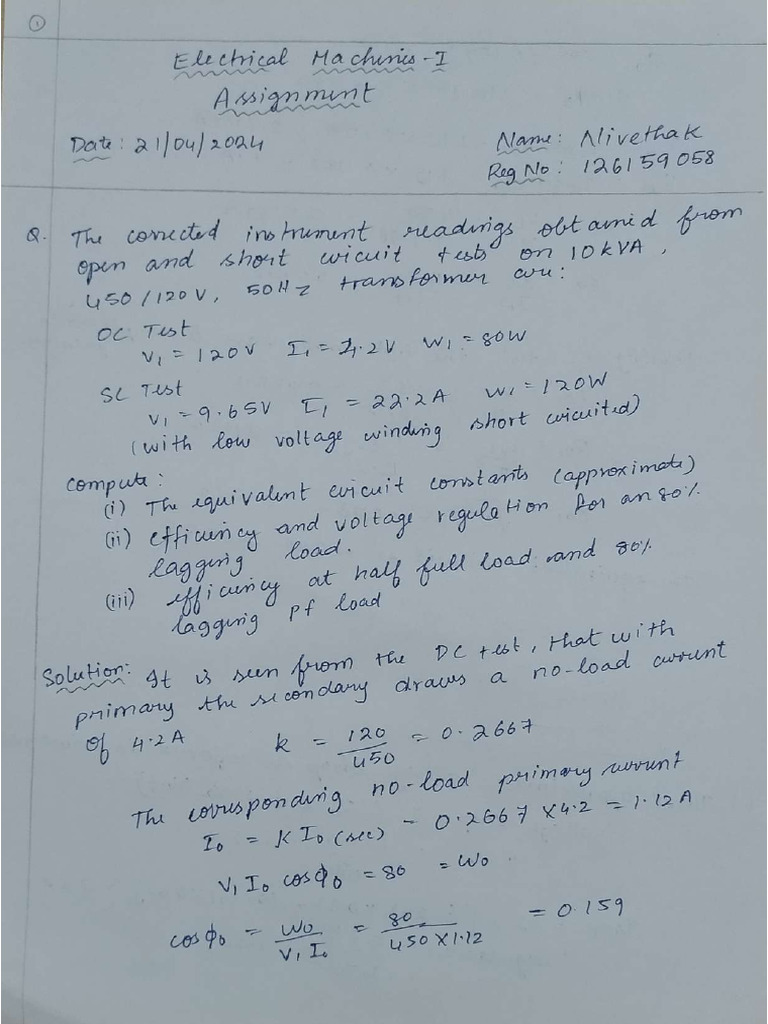 ①
Electrical Machines - I
Assignment
Date: 21/04/2024
Name: Nivetha K
Reg No: 126159058
Q. The corrected instrument readings obtained from
open and short circuit tests on 10 kVA,
450/120V, 50Hz transformer are:
OC Test
V₁ = 120V I₁ = 4.2V W₁ = 80W
SC Test
V₁ = 9.65V I₁ = 22.2A W₁ = 120W
(with low voltage winding short circuited)
compute:
(i) The equivalent circuit constants (approximate)
(ii) efficiency and voltage regulation for an 80%
lagging load.
(iii) efficiency at half full load and 80%
lagging pf load
Solution: It is seen from the OC test, that with
primary the secondary draws a no-load current
of 4.2A k = 120/450 = 0.2667
The corresponding no-load primary current
I₀ = K I₀ (sec) = 0.2667 × 4.2 = 1.12 A
V₁ I₀ cosφ₀ = 80 = W₀
cosφ₀ = W₀/V₁ I₀ = 80/450 × 1.12 = 0.159